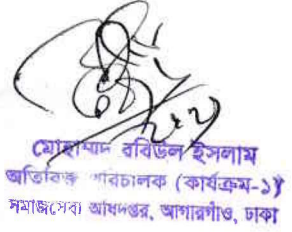 মোহাম্মাদ রবিউল ইসলাম
অতিরিক্ত পরিচালক (কার্যক্রম-১)
সমাজসেবা অধিদপ্তর, আগারগাঁও, ঢাকা